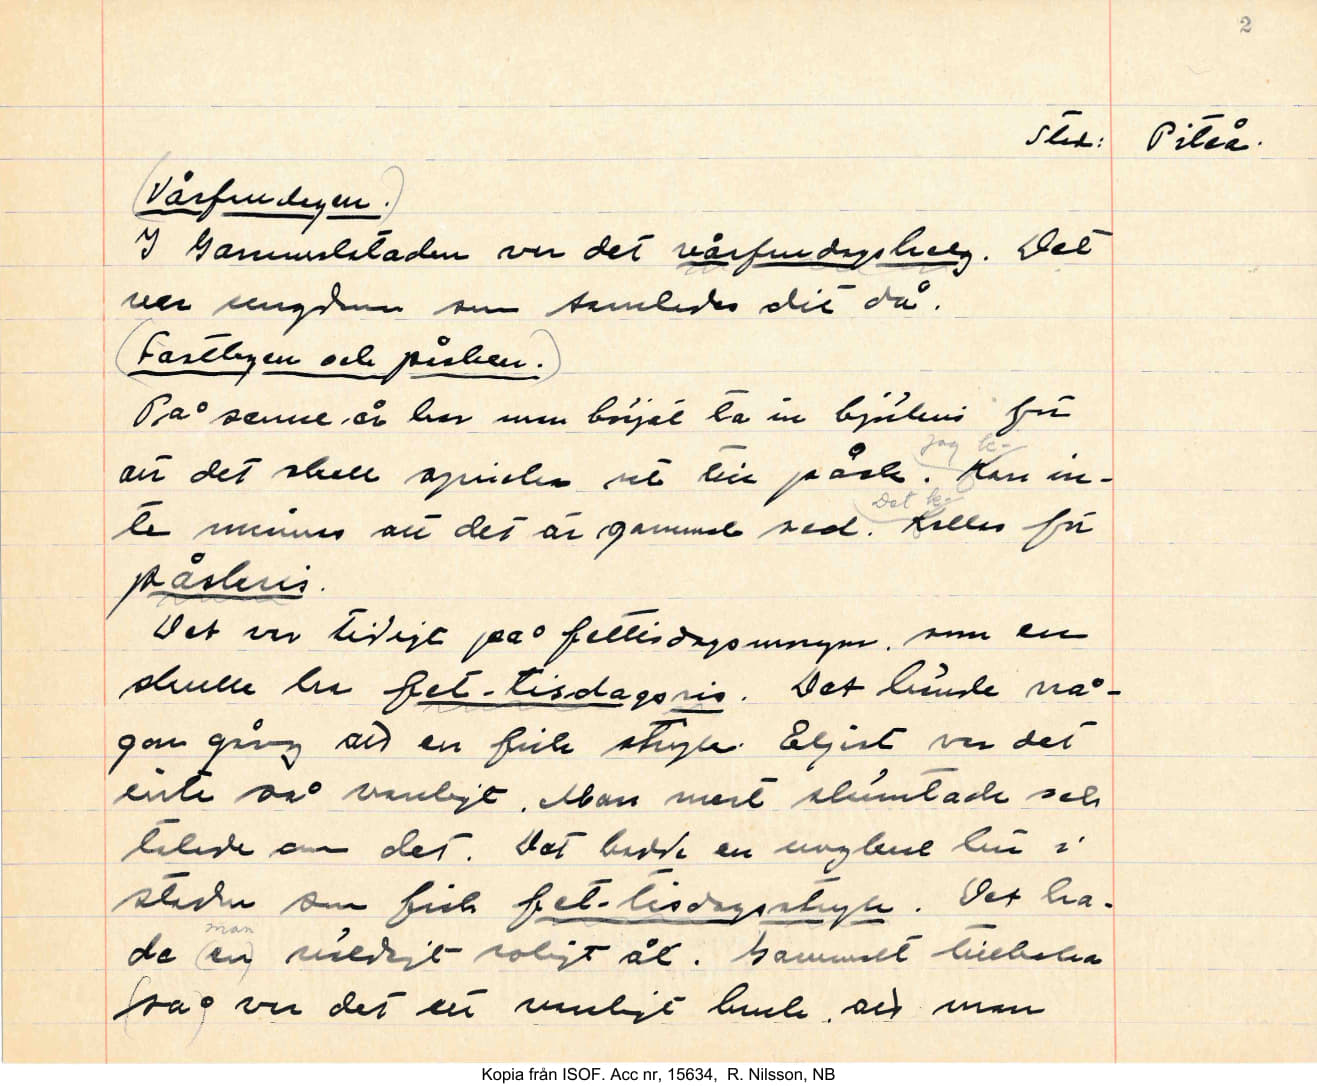 2
Stad: Piteå.
(Vårfrudagen.)
I Gammelstaden var det vårfrudagshelg. Det
var ungdom som samlades dit då.
(Fastlagen och påsken.)
På senare år har man börjat ta in björkris för
att det skall spricka ut till påsk. Kan in-
jag k-
te minnas att det är gammal sed. Kallas för
Det k-
påskris.
Det var tidigt på fettisdagsmorgon, som en
skulle ha fet-tisdagsris. Det hände nå-
gon gång att en fick stryk. Eljest var det
inte så vanligt. Man mest skämtade och
talade om det. Det hadde en ungkarl här i
staden som fick fet-tisdagsstryk. Det ha-
man
de (en) väldigt roligt åt. Gammalt tillbaka
(så) var det ett vanligt bruk, att man
Kopia från ISOF. Acc nr, 15634, R. Nilsson, NB